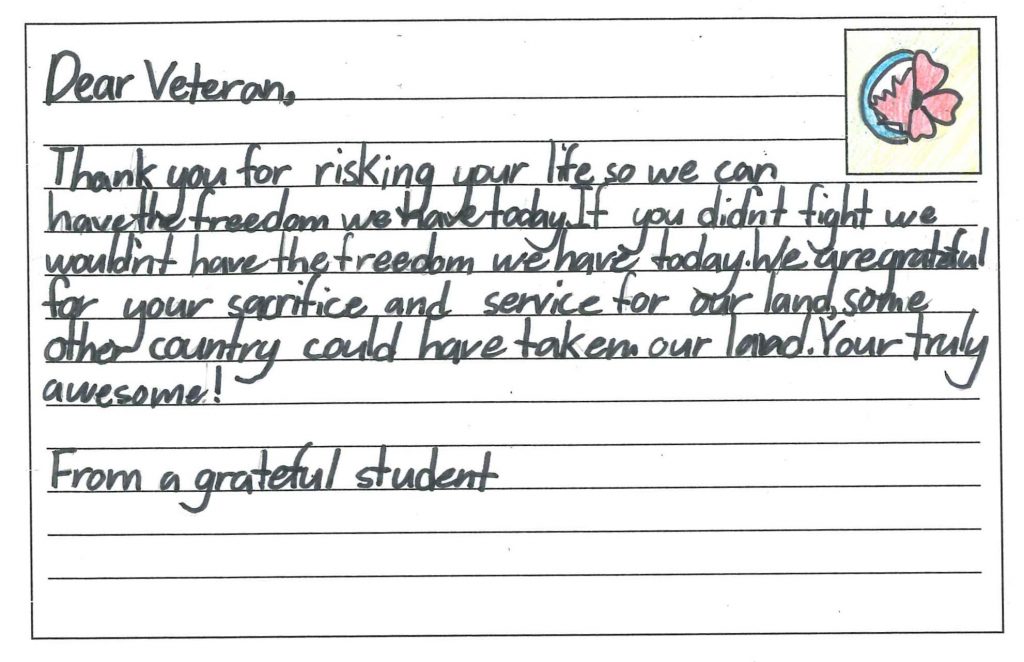 Dear Veteran,
Thank you for risking your life so we can
have the freedom we have today. If you didn't fight we
wouldn't have the freedom we have today. We are grateful
for your sacrifice and service for our land, some
other country could have taken our land. Your truly
awesome!
From a grateful student